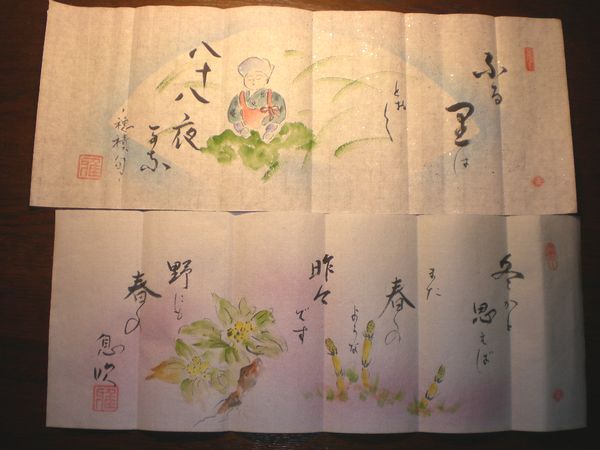 ふる
里は
とおく
八十八夜
可奈
-穂積句-
冬かと
思えば
また
春の
ような
昨今
です
野にも
春の
息吹